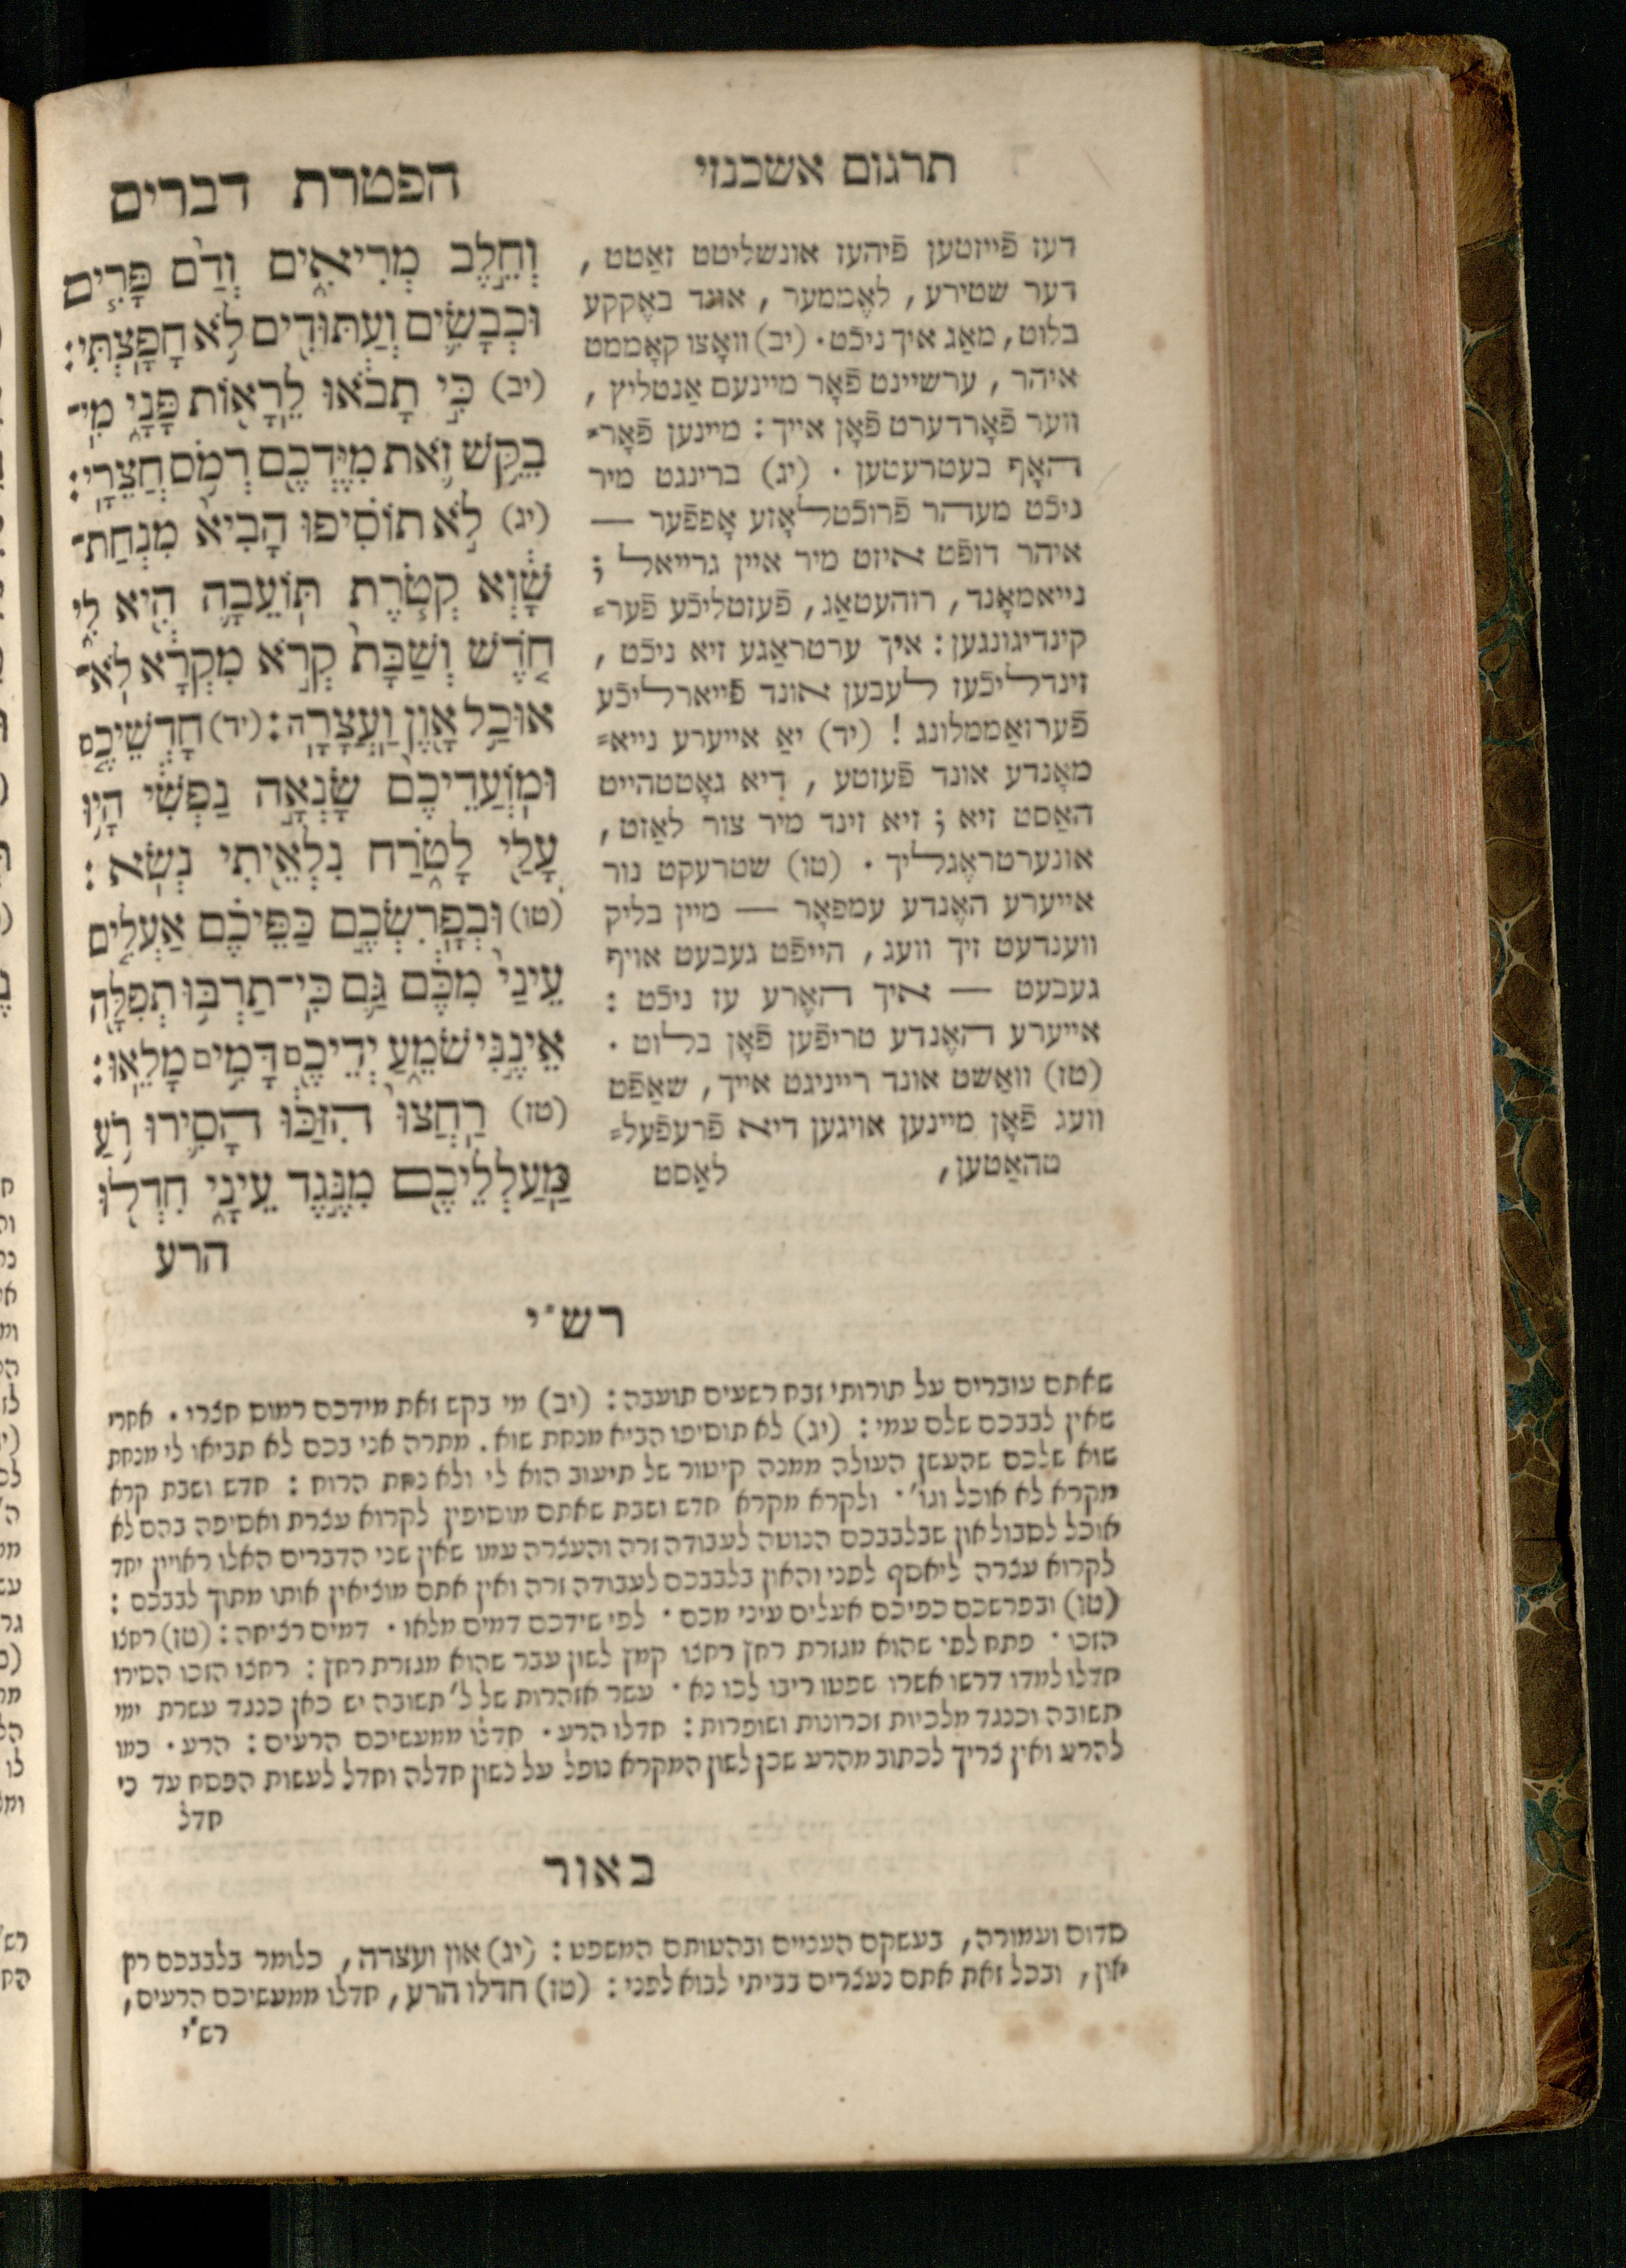 תרגום אשכנזי
הפטרת דברים
דעז פֿייזטען פֿיהעז אונשליטט זאַטט,
דער שטירע, לאֶממער, אונד באֶקקע
בלוט, מאַג איך ניכֿט. (יב) וואָצו קאָממט
איהר, ערשיינט פֿאָר מיינעם אַנטליץ,
ווער פֿאָרדערט פֿאָן אייך: מיינען פֿאָר=
האָף בעטרעטען. (יג) ברינגט מיר
ניכֿט מעהר פֿרוכֿטלאָזע אָפפֿער —
איהר דופֿט איזט מיר איין גרייאל;
נייאמאָנד, רוהעטאַג, פֿעזטליכֿע פֿער=
קינדיגונגען: איך ערטראַגע זיא ניכֿט,
זינדליכֿעז לעבען אונד פֿייארליכֿע
פֿערזאַממלונג! (יד) יאַ אייערע נייא=
מאָנדע אונד פֿעזטע, דיא גאָטטהייט
האַסט זיא; זיא זינד מיר צור לאַזט,
אונערטראֶגליך. (טו) שטרעקט נור
אייערע האֶנדע עמפאָר — מיין בליק
ווענדעט זיך וועג, הייפֿט געבעט אויף
געבעט — איך האֶרע עז ניכֿט:
אייערע האֶנדע טריפֿען פֿאָן בלוט.
(טז) וואַשט אונד רייניגט אייך, שאַפֿט
וועג פֿאָן מיינען אויגען דיא פֿרעפֿעל=
טהאַטען,
לאַסט
וְחֵ֣לֶב מְרִיאִ֑ים וְדַ֨ם פָּרִ֧ים
וּכְבָשִׂ֛ים וְעַתּוּדִ֖ים לֹ֥א חָפָֽצְתִּי׃
(יב) כִּ֣י תָבֹ֔אוּ לֵרָא֖וֹת פָּנָ֑י מִי־
בִקֵּ֥שׁ זֹ֛את מִיֶּדְכֶ֖ם רְמֹ֥ס חֲצֵרָֽי׃
(יג) לֹ֣א תוֹסִ֗יפוּ הָבִיא֙ מִנְחַת־
שָׁ֔וְא קְטֹ֧רֶת תּוֹעֵבָ֛ה הִ֖יא לִ֑י
חֹ֤דֶשׁ וְשַׁבָּת֙ קְרֹ֣א מִקְרָ֔א לֹא־
אוּכַ֥ל אָ֖וֶן וַעֲצָרָֽה׃ (יד) חָדְשֵׁיכֶ֤ם
וּמֽוֹעֲדֵיכֶם֙ שָׂנְאָ֣ה נַפְשִׁ֔י הָי֥וּ
עָלַ֖י לָטֹ֑רַח נִלְאֵ֖יתִי נְשֹֽׂא׃
(טו) וּבְפָרִשְׂכֶ֣ם כַּפֵּיכֶ֗ם אַעְלִ֤ים
עֵינַי֙ מִכֶּ֔ם גַּ֛ם כִּֽי־תַרְבּ֥וּ תְפִלָּ֖ה
אֵינֶ֣נִּי שֹׁמֵ֑עַ יְדֵיכֶ֖ם דָּמִ֥ים מָלֵֽאוּ׃
(טז) רַֽחֲצוּ֙ הִזַּכּ֔וּ הָסִ֛ירוּ רֹ֥עַ
מַעַלְלֵיכֶ֖ם מִנֶּ֣גֶד עֵינָ֑י חִדְל֖וּ
הרע
רש״י
שאתם עוברים על תורותי זבח רשעים תועבה: (יב) מי בקש זאת מידכם רמוס חצרי. אחרי
שאין לבבכם שלם עמי: (יג) לא תוסיפו הביא מנחת שוא. מתרה אני בכם לא תביאו לי מנחת
שוא שלכם שהעשן העולה ממנה קיטור של תיעוב הוא לי ולא נחת הרוח: חדש ושבת קרא
מקרא לא אוכל וגו׳. ולקרא מקרא חדש ושבת שאתם מוסיפין לקרוא עצרת ואסיפה בהם לא
אוכל לסבול און שבלבבכם הנוטה לעבודה זרה והעצרה עמו שאין שני הדברים האלו ראויין יחד
לקרוא עצרה ליאסף לפני והאון בלבבכם לעבודה זרה ואין אתם מוציאין אותו מתוך לבבכם:
(טו) ובפרשכם כפיכם אעלים עיני מכם. לפי שידכם דמים מלאו. דמים רציחה: (טז) רחצו
הזכו. פתח לפי שהוא מגזרת רחץ רחצו קמץ לשון עבר שהוא מגזרת רחץ: רחצו הזכו הסירו
חדלו למדו דרשו אשרו שפטו ריבו לכו נא. עשר אזהרות של ל׳ תשובה יש כאן כנגד עשרת ימי
תשובה וכנגד מלכיות זכרונות ושופרות: חדלו הרע. חדלו ממעשיכם הרעים: הרע. כמו
להרע ואין צריך לכתוב מהרע שכן לשון המקרא נופל על לשון חדלה וחדל לעשות הפסח עד כי
חדל
באור
סדום ועמורה, בעשקם העניים ובהטותם המשפט: (יג) און ועצרה, כלומר בלבבכם רק
און, ובכל זאת אתם נעצרים בביתי לבוא לפני: (טז) חדלו הרע, חדלו ממעשיכם הרעים,
רש״י